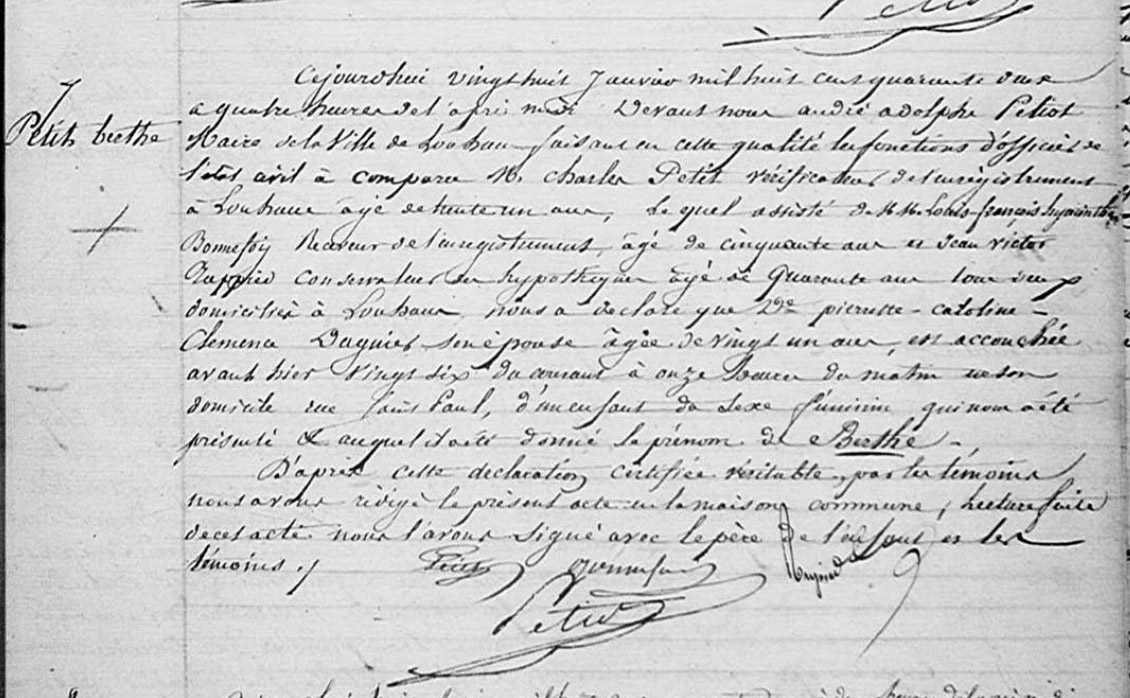 Petiot
7
Petit berthe
Cejourdhui vingt huit Janvier mil huit cent quarante deux
a quatre heures de l'après midi Devant nous andré adolphe Petiot
Maire de la Ville de Louhans faisant en cette qualité les fonctions d'officier de
l'état civil à comparu M. Charles Petit vérificateur de l'enregistrement
à Louhans âgé de trente un ans, Lequel assisté de M.M. Louis-françois hyacinthe
Bonnefoy Receveur de l'enregistrement, âgé de cinquante ans et Jean victor
conservateur des hypothèques âgé de Quarante ans tous deux
domiciliés à Louhans, nous a déclaré que Dme pierrette-caroline-
Clemence Daguier son épouse âgée de vingt un ans, est accouchée
avant hier vingt six du courant à onze heures du matin en son
domicile rue Saint Paul, d'un enfant du sexe féminin qui nous a été
présenté & auquel il a été donné le prénom de Berthe -
D'après cette déclaration certifiée véritable par les témoins
nous avons rédigé le présent acte en la maison commune, Lecture faite
de cet acte nous l'avons signé avec le père de l'enfant et les
témoins ./ Petit Bonnefoy
Petiot